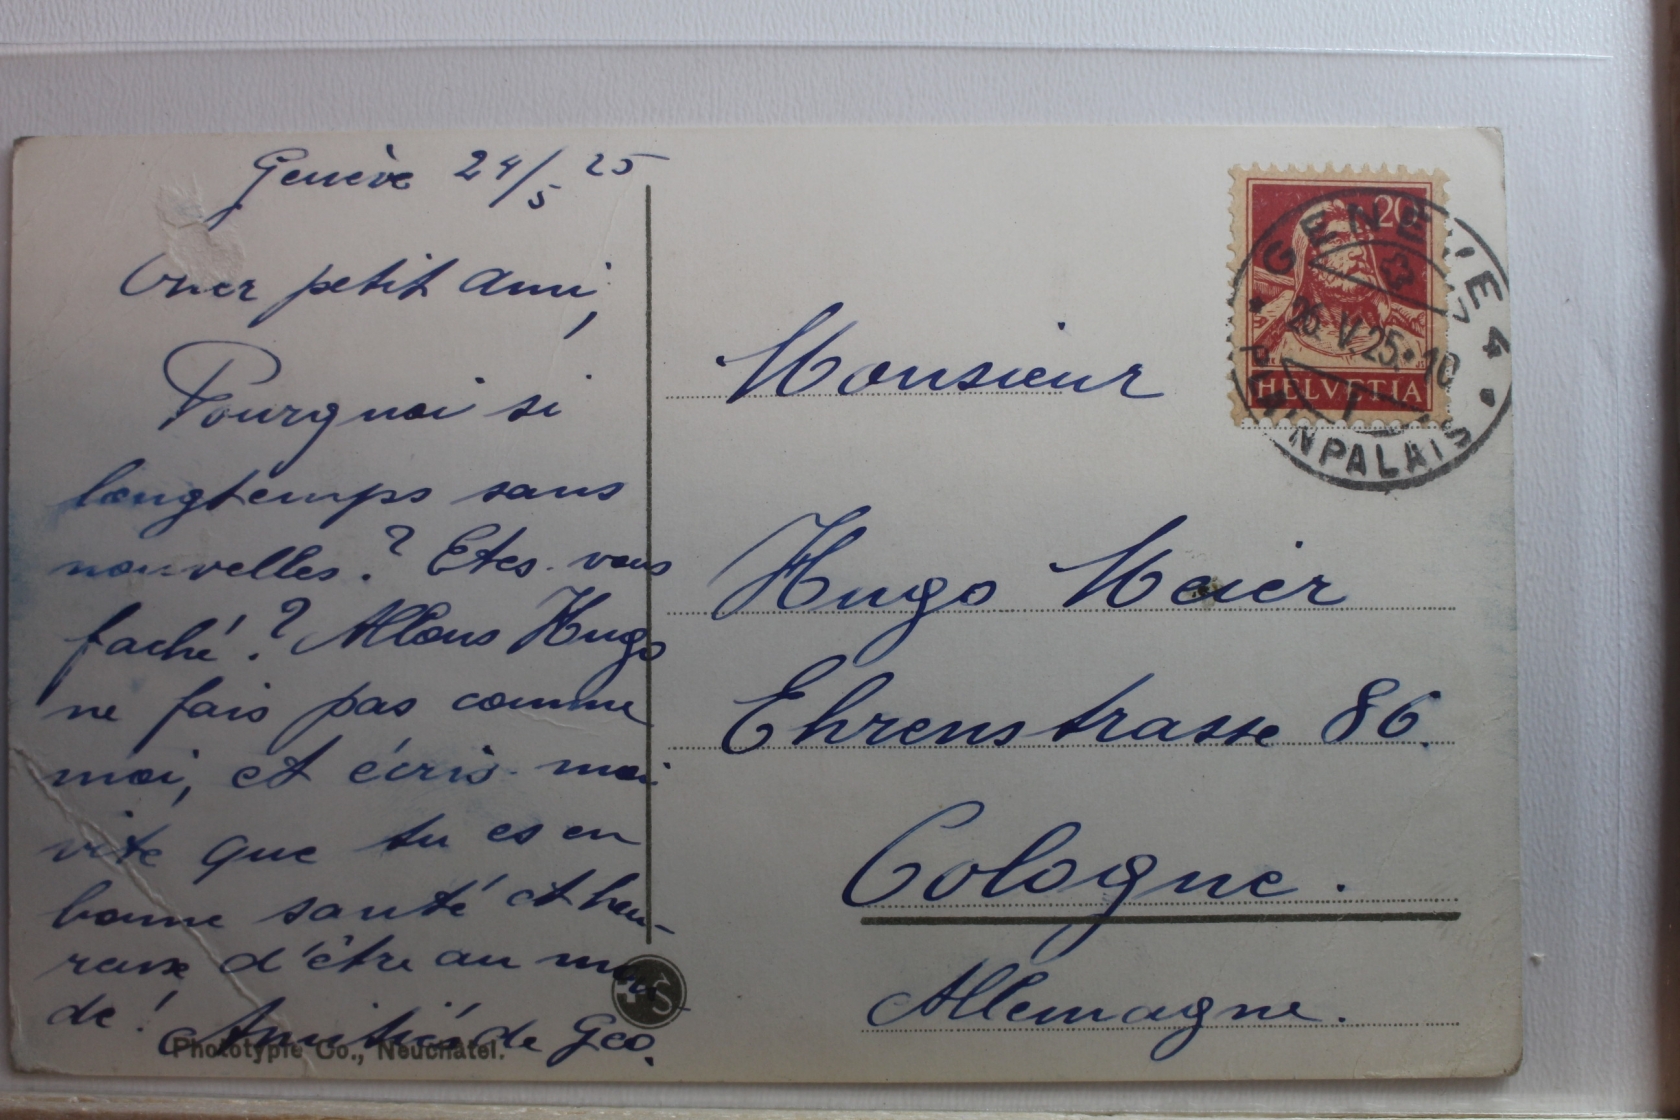 Genève 24/5 25
Cher petit ami,
Pourquoi si
longtemps sans
nouvelles? Etes-vous
faché? Allons Hugo
ne fais pas comme
moi, et écris-moi
vite que tu es en
bonne santé et heu-
reux d'être au mon
de! Amitiés de Geo.
Phototypie Co., Neuchâtel.
Monsieur
Hugo Meier
Ehrenstrasse 86.
Cologne.
Allemagne.
20
HELVETIA
GENÈVE 4
26.V.25.10
PLAINPALAIS